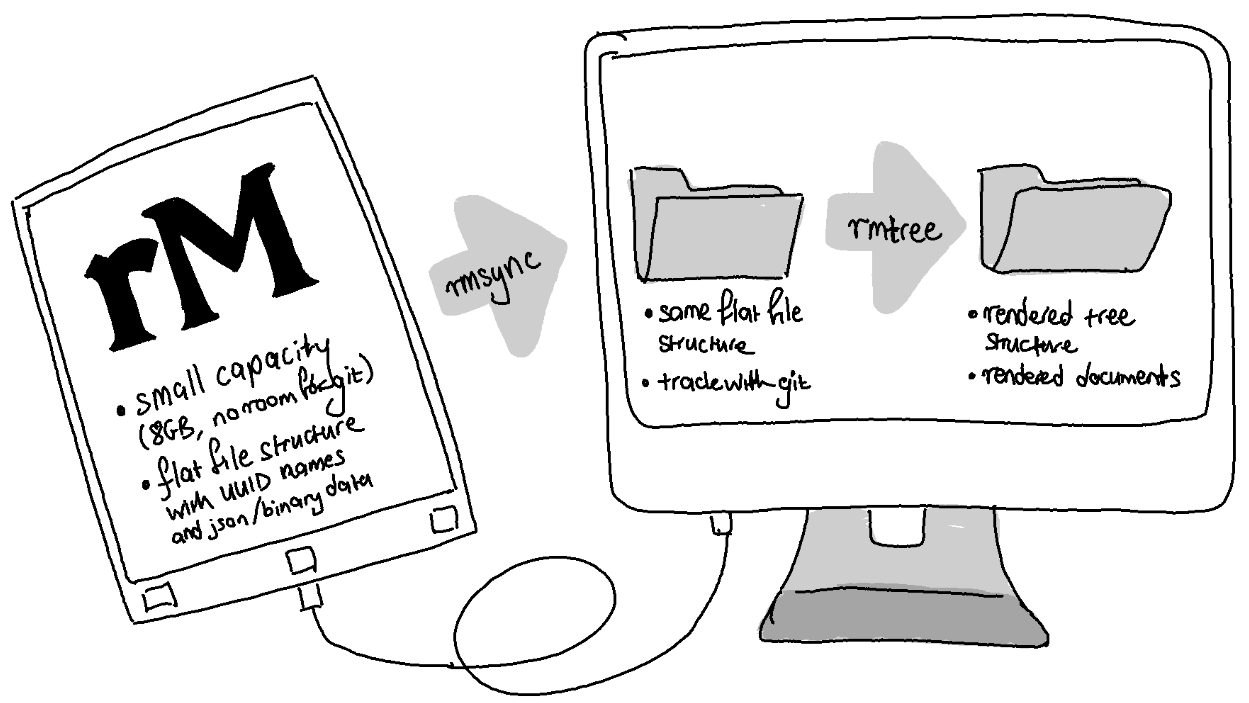 rM
• small capacity
(8GB, no room for git)
• flat file structure
with UUID names
and json/binary data
rmsync
• same flat file
structure
• track with git
rmtree
• rendered tree
structure
• rendered documents